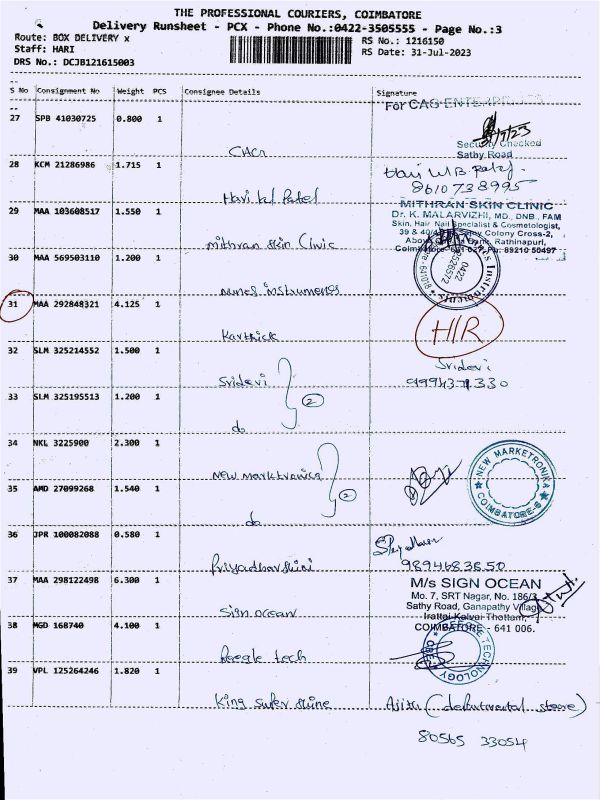 THE PROFESSIONAL COURIERS, COIMBATORE
Delivery Runsheet - PCX - Phone No.:0422-3505555 - Page No.:3
Route: BOX DELIVERY x
RS No.: 1216150
Staff: HARI
RS Date: 31-Jul-2023
DRS No.: DCJB121615003
S No Consignment No Weight PCS Consignee Details Signature
For CAG ENTERPRISES
27 SPB 41030725 0.800 1
Security Checked
Sathy Road
28 KCM 21286986 1.715 1
8610738995
Patel
29 MAA 103608517 1.550 1
MITHRAN SKIN CLINIC
Dr. K. MALARVIZHI, MD., DNB., FAM
Skin, Hair, Nail Specialist & Cosmetologist,
Colony Cross-2,
Bank, Rathinapuri,
Ph: 89210 50497
mithran skin Clinic
30 MAA 569503110 1.200 1
Instruments
0422
instruments
31 MAA 292848321 4.125 1
H/R
Karthick
32 SLM 325214552 1.500 1
Sridevi
Sridevi
2
33 SLM 325195513 1.200 1
do
34 NKL 3225900 2.300 1
NEW MARKETRONIKA
COIMBATORE-6
New
2
35 AMD 27099268 1.540 1
do
36 JPR 100082088 0.580 1
9894683850
Priyadharshini
37 MAA 298122498 6.300 1
M/s SIGN OCEAN
Mo. 7, SRT Nagar, No. 186/3,
Sathy Road, Ganapathy Village
Irattai Kalvai Thottam,
COIMBATORE - 641 006.
Sign ocean
38 MGD 168740 4.100 1
TECHNOLOGY
tech
39 VPL 125264246 1.820 1
King super shine
store)
80565 33054